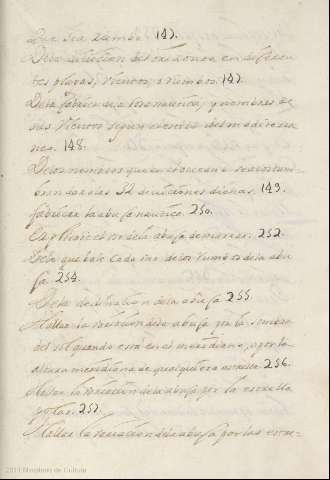 Que sea rumbo. 147.
De la division del orizonte en diferen
tes plagas, vientos, o rumbos. 147.
De la fabrica de la rosa nautica, y nombres de
sus vientos segun el estilo del mediterra
neo. 148.
De los nombres que en el oceano se acostum
bran dar a las 32 divisiones dichas. 149.
fabricar la abuja nautica. 250.
Explicacion de la abuja de marear. 252.
lo que bale cada uno de los rumbos de la abu
ja. 254.
de la abuja 255.
Hallar la variacion de la abuja por la sombra
del sol quando está en el meridiano, o por la
altura meridiana de qualquiera estrella 256.
Hallar la variacion de la abuja por la estrella
polar. 257.
Hallar la variacion de la abuja por las estre-
2011 Ministerio de Cultura